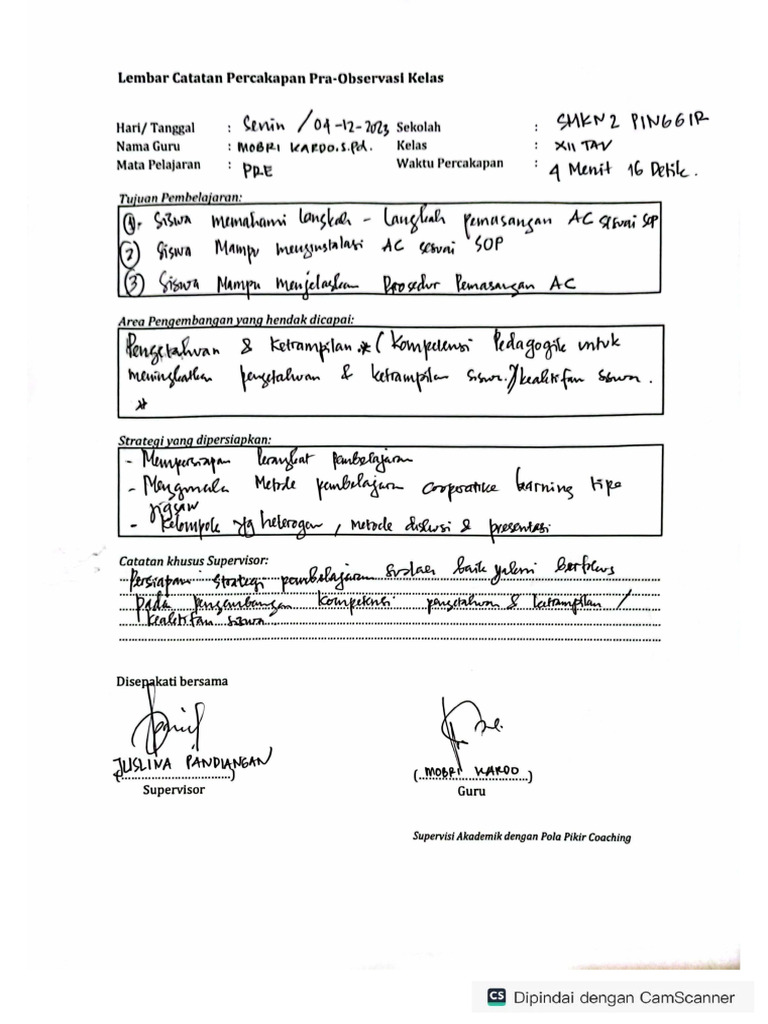 Lembar Catatan Percakapan Pra-Observasi Kelas
Hari/ Tanggal : Senin / 04-12-2023 Sekolah : SMKN 2 PINGGIR
Nama Guru : MOBRI KARDO.S.Pd. Kelas : XII TAV
Mata Pelajaran : PRE Waktu Percakapan : 4 Menit 16 Detik.
Tujuan Pembelajaran:
1. Siswa memahami langkah - langkah pemasangan AC sesuai SOP
2 Siswa Mampu menginstalasi AC sesuai SOP
3 Siswa Mampu menjelaskan Prosedur Pemasangan AC
Area Pengembangan yang hendak dicapai:
Pengetahuan & Ketrampilan * (Kompetensi Pedagogik untuk
meningkatkan pengetahuan & ketrampilan siswa.)/keaktifan siswa.
*
Strategi yang dipersiapkan:
- Mempersiapan Perangkat pembelajaran
- Metode pembelajaran cooporatike learning tipe
jigsaw
- Kelompok yg heterogen, metode diskusi & presentasi
Catatan khusus Supervisor:
Persiapan strategi pembelajaran sudah baik yakni berfokus
pada pengembangan kompetensi pengetahuan & ketrampilan /
keaktifan siswa
Disepakati bersama
JUSLINA PANDIANGAN
(..............................)
Supervisor
(MOBRI KARDO)
Guru
Supervisi Akademik dengan Pola Pikir Coaching
CS Dipindai dengan CamScanner